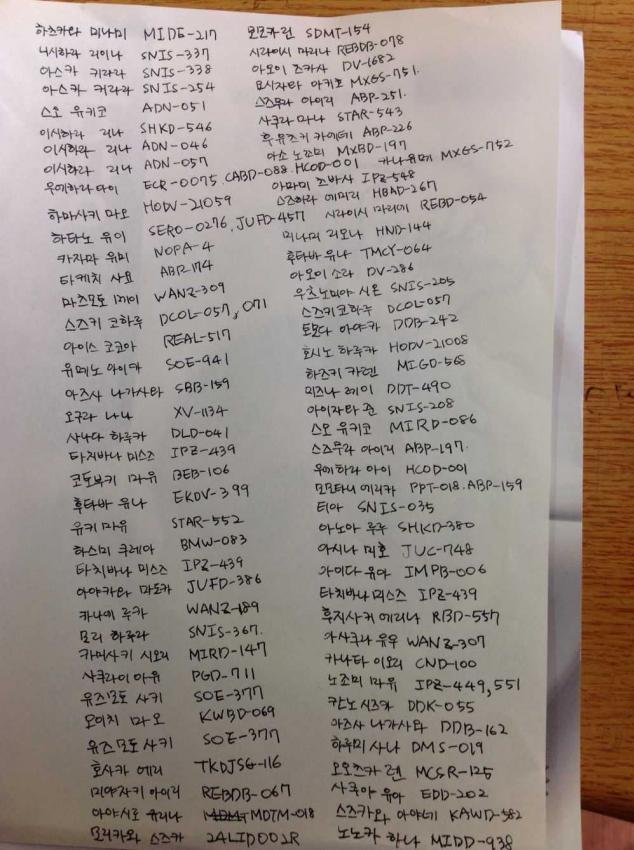 하즈키와 미나미 MIDE-217
니시하라 리이나 SNIS-337
아스카 키라라 SNIS-338
아스카 키라라 SNIS-254
스오 유키코 ADN-051
이시하라 리나 SHKD-546
이시하라 리나 ADN-046
이시하라 리나 ADN-057
우에하라 아이 ECR-0075, CABD-088. HCOD-001
하마사키 마오 HODV-21059
하타노 유이 SERO-0276, JUFD-457
카자마 유미 NOPA-4
타케치 사요 ABP-174
마츠모토 메이 WANZ-309
스즈키 코하루 DCOL-057, 071
아이스 코코아 REAL-517
유메노 아이카 SOE-941
아즈사 나가사와 SBB-159
오구라 나나 XV-1134
사나다 하루카 DLD-041
타치바나 미스즈 IPZ-439
코토부키 마유 BEB-106
후타바 유나 EKDV-399
유키 마유 STAR-552
하스미 쿠레아 BMW-083
타치바나 미스즈 IPZ-439
아야카와 마도카 JUFD-386
카나에 루카 WANZ-189
모리 하루라 SNIS-367.
카미사키 시오리 MIRD-147
사쿠라이 아유 PGD-711
유즈모토 사키 SOE-377
오이치 마오 KWBD-069
유즈모토 사키 SOE-377
호사카 에리 TKDJSG-116
미야자키 아이리 REBDB-067
아야시로 유리나 MDTM-018
모리카와 스즈카 24LID001R
모모카 린 SDMT-154
시라이시 마리나 REBDB-078
아오이 츠카사 DV-1682
요시자와 아키호 MXGS-751.
스즈무라 아이리 ABP-251.
사쿠라 마나 STAR-543
후유즈키 카에데 ABP-226
아소 노조미 MXBD-197
카나 유메 MXGS-752
아마미 츠바사 IPZ-548
스즈하라 에미리 HBAD-267
시라이시 마리에 REBD-054
미나미 리오나 HND-144
후타바 유나 TMCY-064
아오이 소라 DV-286
우츠노미야 시온 SNIS-205
스즈키 코하루 DCOL-057
토모다 아야카 DDB-242
호시노 하루카 HODV-21008
하즈키 카렌 MIGD-568
미즈나 레이 DDT-490
아이자와 쥰 SNIS-208
스오 유키코 MIRD-086
스즈무라 아이리 ABP-197.
우에하라 아이 HCOD-001
모모타니 에리카 PPT-018. ABP-159
티아 SNIS-035
아노아 루루 SHKD-380
아시나 미호 JUC-748
아이다 유아 IMPB-006
타치바나 미스즈 IPZ-439
후지사키 에리나 RBD-557
아사쿠라 유우 WANZ-307
카나타 이오리 CND-100
노조미 마유 IPZ-449, 551
칸노 시즈카 DDK-055
아즈사 나가사와 DDB-162
하루미 사나 DMS-019
오오츠카 렌 MCSR-125
사쿠야 유아 EDD-202
스즈카와 아야네 KAWD-582
노노카 하나 MIDD-938